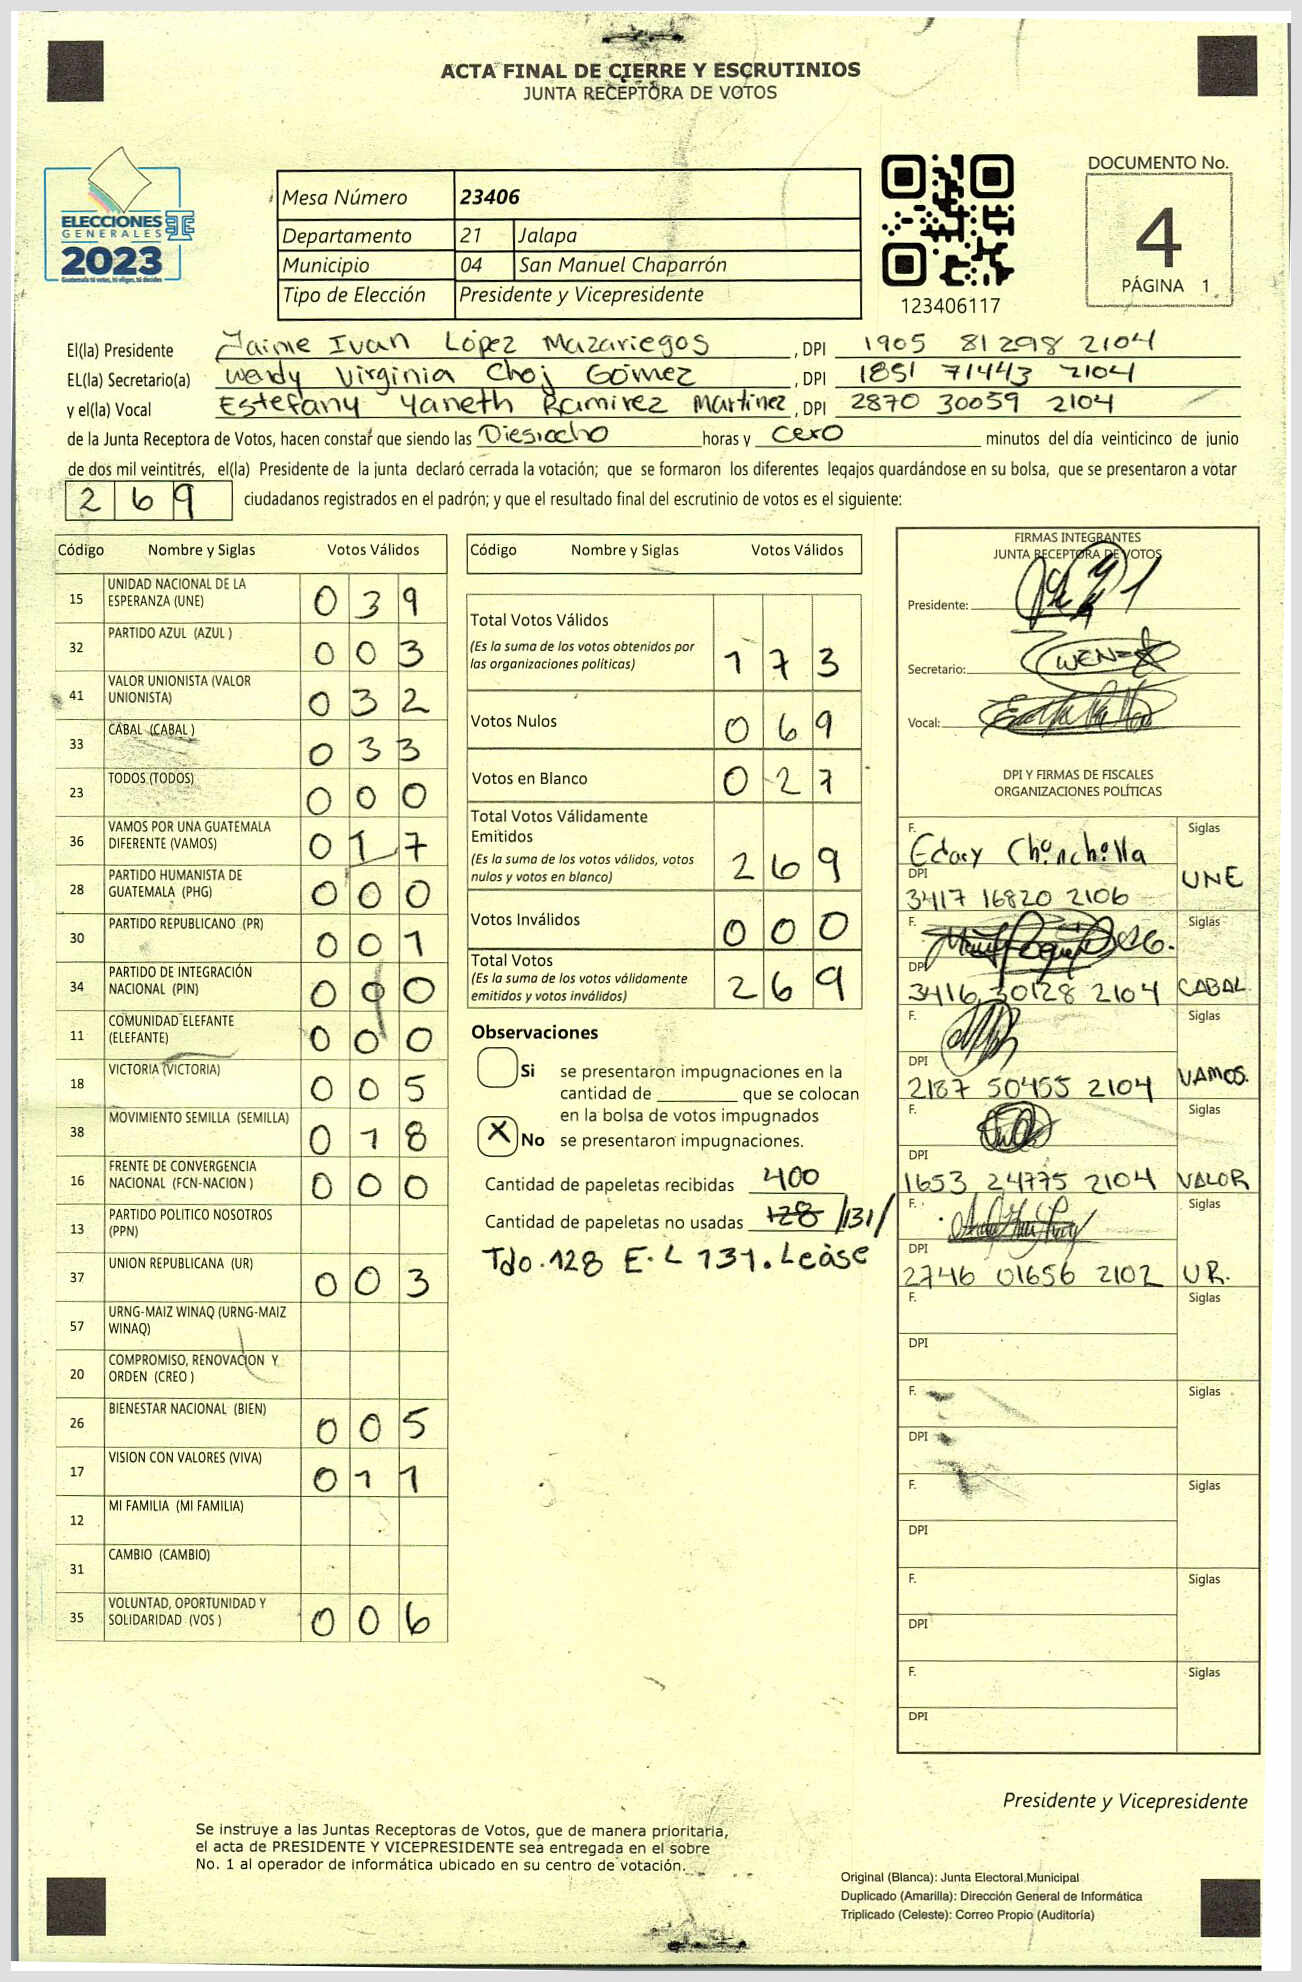 ACTA FINAL DE CIERRE Y ESCRUTINIOS
JUNTA RECEPTORA DE VOTOS
ELECCIONES
GENERALES
2023
Guatemala tú votes, tú eliges, tú decides
Mesa Número 23406
Departamento 21 Jalapa
Municipio 04 San Manuel Chaparrón
Tipo de Elección Presidente y Vicepresidente
123406117
DOCUMENTO No.
4
PÁGINA 1
El(la) Presidente Jaime Ivan López Mazariegos, DPI 1905 81298 2104
EL(la) Secretario(a) Wendy Virginia Choj Gómez, DPI 1851 71443 2104
y el(la) Vocal Estefany Yaneth Ramirez Martinez, DPI 2870 30059 2104
de la Junta Receptora de Votos, hacen constar que siendo las Diesiocho horas y cero minutos del día veinticinco de junio
de dos mil veintitrés, el(la) Presidente de la junta declaró cerrada la votación; que se formaron los diferentes legajos quardándose en su bolsa, que se presentaron a votar
2 6 9 ciudadanos registrados en el padrón; y que el resultado final del escrutinio de votos es el siguiente:
Código Nombre y Siglas Votos Válidos
15 UNIDAD NACIONAL DE LA ESPERANZA (UNE) 0 3 9
32 PARTIDO AZUL (AZUL ) 0 0 3
41 VALOR UNIONISTA (VALOR UNIONISTA) 0 3 2
33 CABAL (CABAL ) 0 3 3
23 TODOS (TODOS) 0 0 0
36 VAMOS POR UNA GUATEMALA DIFERENTE (VAMOS) 0 1 7
28 PARTIDO HUMANISTA DE GUATEMALA (PHG) 0 0 0
30 PARTIDO REPUBLICANO (PR) 0 0 1
34 PARTIDO DE INTEGRACIÓN NACIONAL (PIN) 0 0 0
11 COMUNIDAD ELEFANTE (ELEFANTE) 0 0 0
18 VICTORIA (VICTORIA) 0 0 5
38 MOVIMIENTO SEMILLA (SEMILLA) 0 1 8
16 FRENTE DE CONVERGENCIA NACIONAL (FCN-NACION ) 0 0 0
13 PARTIDO POLITICO NOSOTROS (PPN)
37 UNION REPUBLICANA (UR) 0 0 3
57 URNG-MAIZ WINAQ (URNG-MAIZ WINAQ)
20 COMPROMISO, RENOVACION Y ORDEN (CREO )
26 BIENESTAR NACIONAL (BIEN) 0 0 5
17 VISION CON VALORES (VIVA) 0 1 1
12 MI FAMILIA (MI FAMILIA)
31 CAMBIO (CAMBIO)
35 VOLUNTAD, OPORTUNIDAD Y SOLIDARIDAD (VOS ) 0 0 6
Código Nombre y Siglas Votos Válidos
Total Votos Válidos
(Es la suma de los votos obtenidos por
las organizaciones políticas) 1 7 3
Votos Nulos 0 6 9
Votos en Blanco 0 2 7
Total Votos Válidamente
Emitidos
(Es la suma de los votos válidos, votos
nulos y votos en blanco) 2 6 9
Votos Inválidos 0 0 0
Total Votos
(Es la suma de los votos válidamente
emitidos y votos inválidos) 2 6 9
Observaciones
Si se presentaron impugnaciones en la
cantidad de ________ que se colocan
en la bolsa de votos impugnados
X No se presentaron impugnaciones.
Cantidad de papeletas recibidas 400
Cantidad de papeletas no usadas 128 /131/
Tdo. 128 E.L 131. Leáse
FIRMAS INTEGRANTES
JUNTA RECEPTORA DE VOTOS
Presidente:
Secretario:
Vocal:
DPI Y FIRMAS DE FISCALES
ORGANIZACIONES POLÍTICAS
F. Siglas
DPI 3417 16820 2106 UNE
F. Siglas
DPI 3416 30128 2104 CABAL
F. Siglas
DPI 2187 50455 2104 VAMOS.
F. Siglas
DPI 1653 24775 2104 VALOR
F. Siglas
DPI 2746 01656 2102 UR.
F. Siglas
DPI
F. Siglas
DPI
F. Siglas
DPI
F. Siglas
DPI
F. Siglas
DPI
Presidente y Vicepresidente
Se instruye a las Juntas Receptoras de Votos, que de manera prioritaria,
el acta de PRESIDENTE Y VICEPRESIDENTE sea entregada en el sobre
No. 1 al operador de informática ubicado en su centro de votación.
Original (Blanca): Junta Electoral Municipal
Duplicado (Amarilla): Dirección General de Informática
Triplicado (Celeste): Correo Propio (Auditoría)